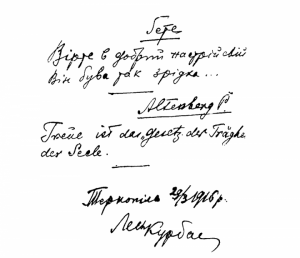 Гете
Вірте в добрий настрій свій
Він бува так зрідка...
Altenberg P.
Treue ist das Gesetz der Träghe.
der Seele.
Тернопіль 29/3 1916 р.
Лесь Курбас